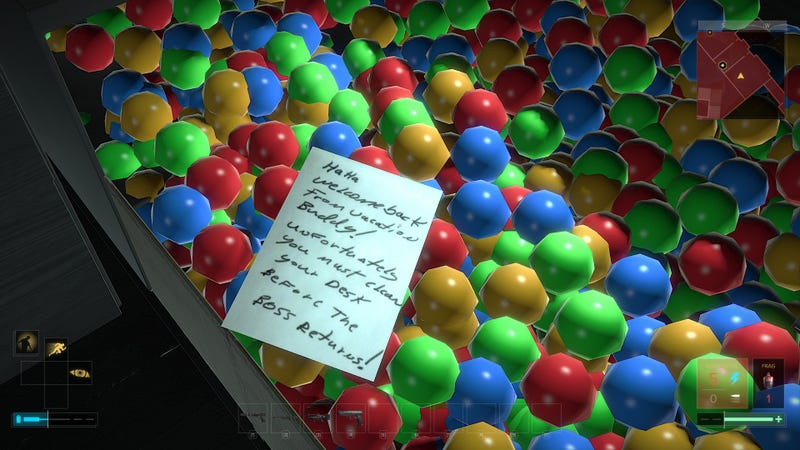 HaHa
Welcome back
From vacation
Buddy!
Unfortunately
you must clean
your DESK
BeFore The
BOSS Returns!
FRAG
5
0
1